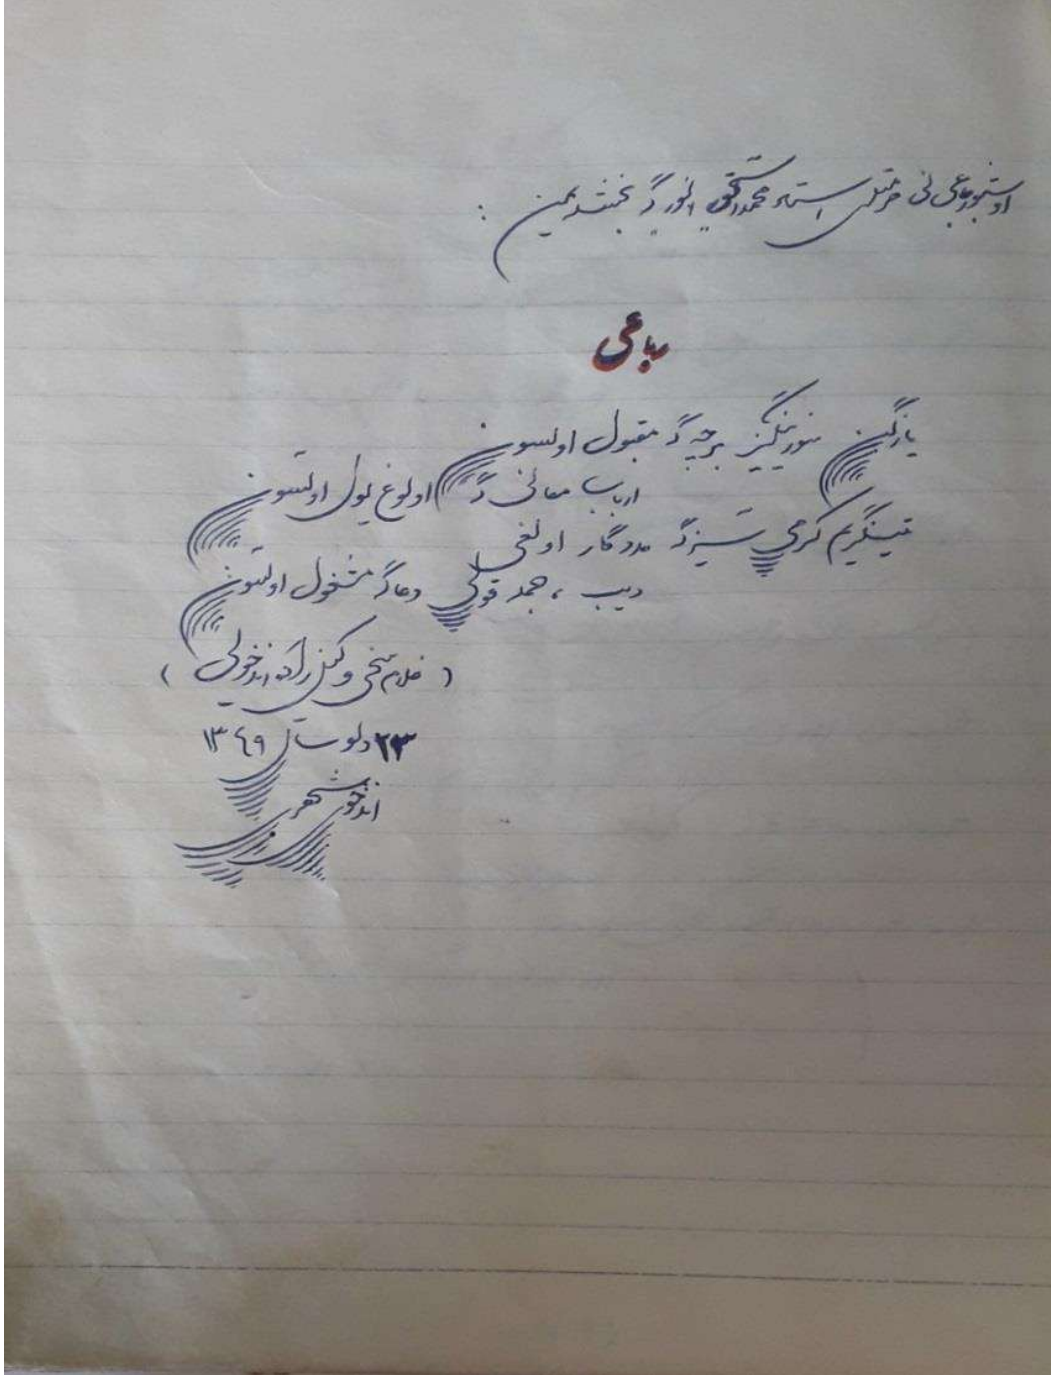 اوشبو رباعی نی حرمتلی استاد محمد امین متین اندخویی گه بغیشله یمن :
رباعی
یازگن سوزینگیز برچه گه مقبول اولسون
ارباب معانی گه اولوغ یول اولسون
تینگریم کرمی سیزگه مددگار اولغی
دیب ، همد قولی دعاگه مشغول اولسون
( غلام سخی وکیل زاده اندخویی )
۲۳ دلو سال ۱۳۴۹
اندخوی شهری